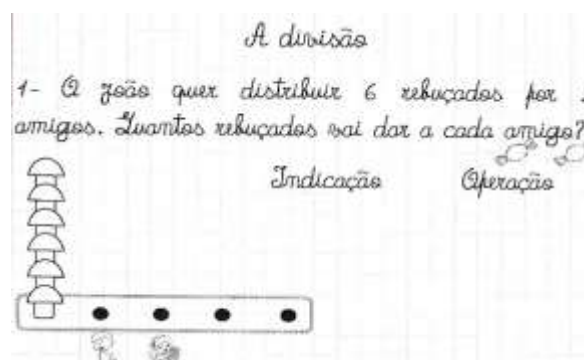 A divisão
1- O João quer distribuir 6 rebuçados por
amigos. Quantos rebuçados vai dar a cada amigo?
Indicação Operação